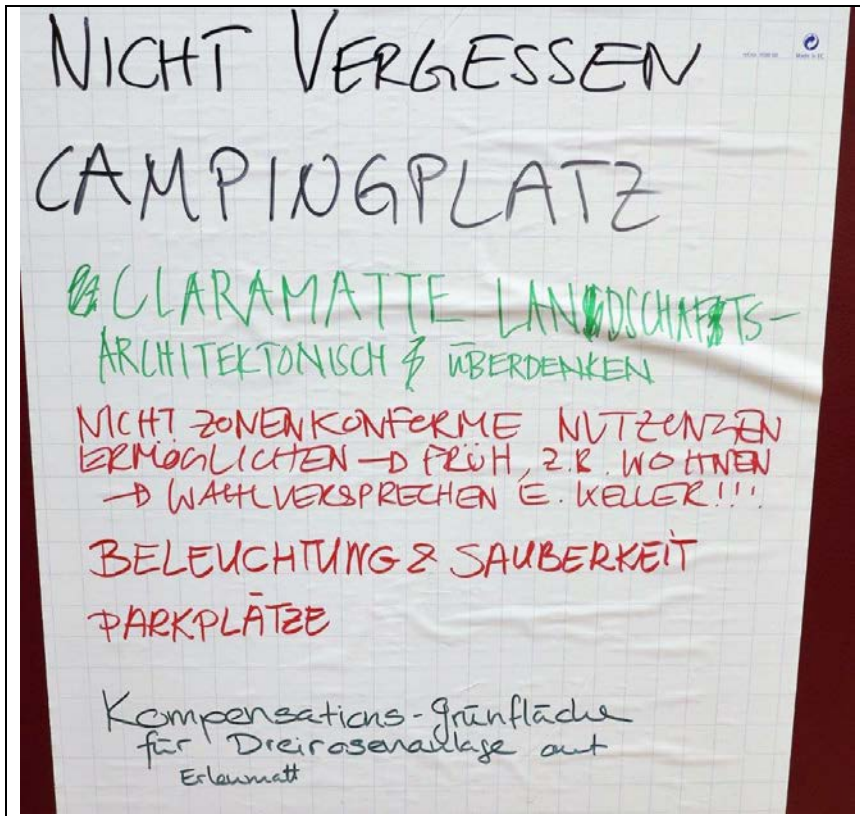 NICHT VERGESSEN
CAMPINGPLATZ
CLARAMATTE LANDSCHAFTS-
ARCHITEKTONISCH ÜBERDENKEN
NICHT ZONENKONFORME NUTZUNGEN
ERMÖGLICHEN → FRÜH, Z.B. WOHNEN
→ WAHLVERSPRECHEN E. KELLER!!!
BELEUCHTUNG & SAUBERKEIT
PARKPLÄTZE
Kompensations-Grünfläche
für Dreirosenanlage auf
Erlenmatt